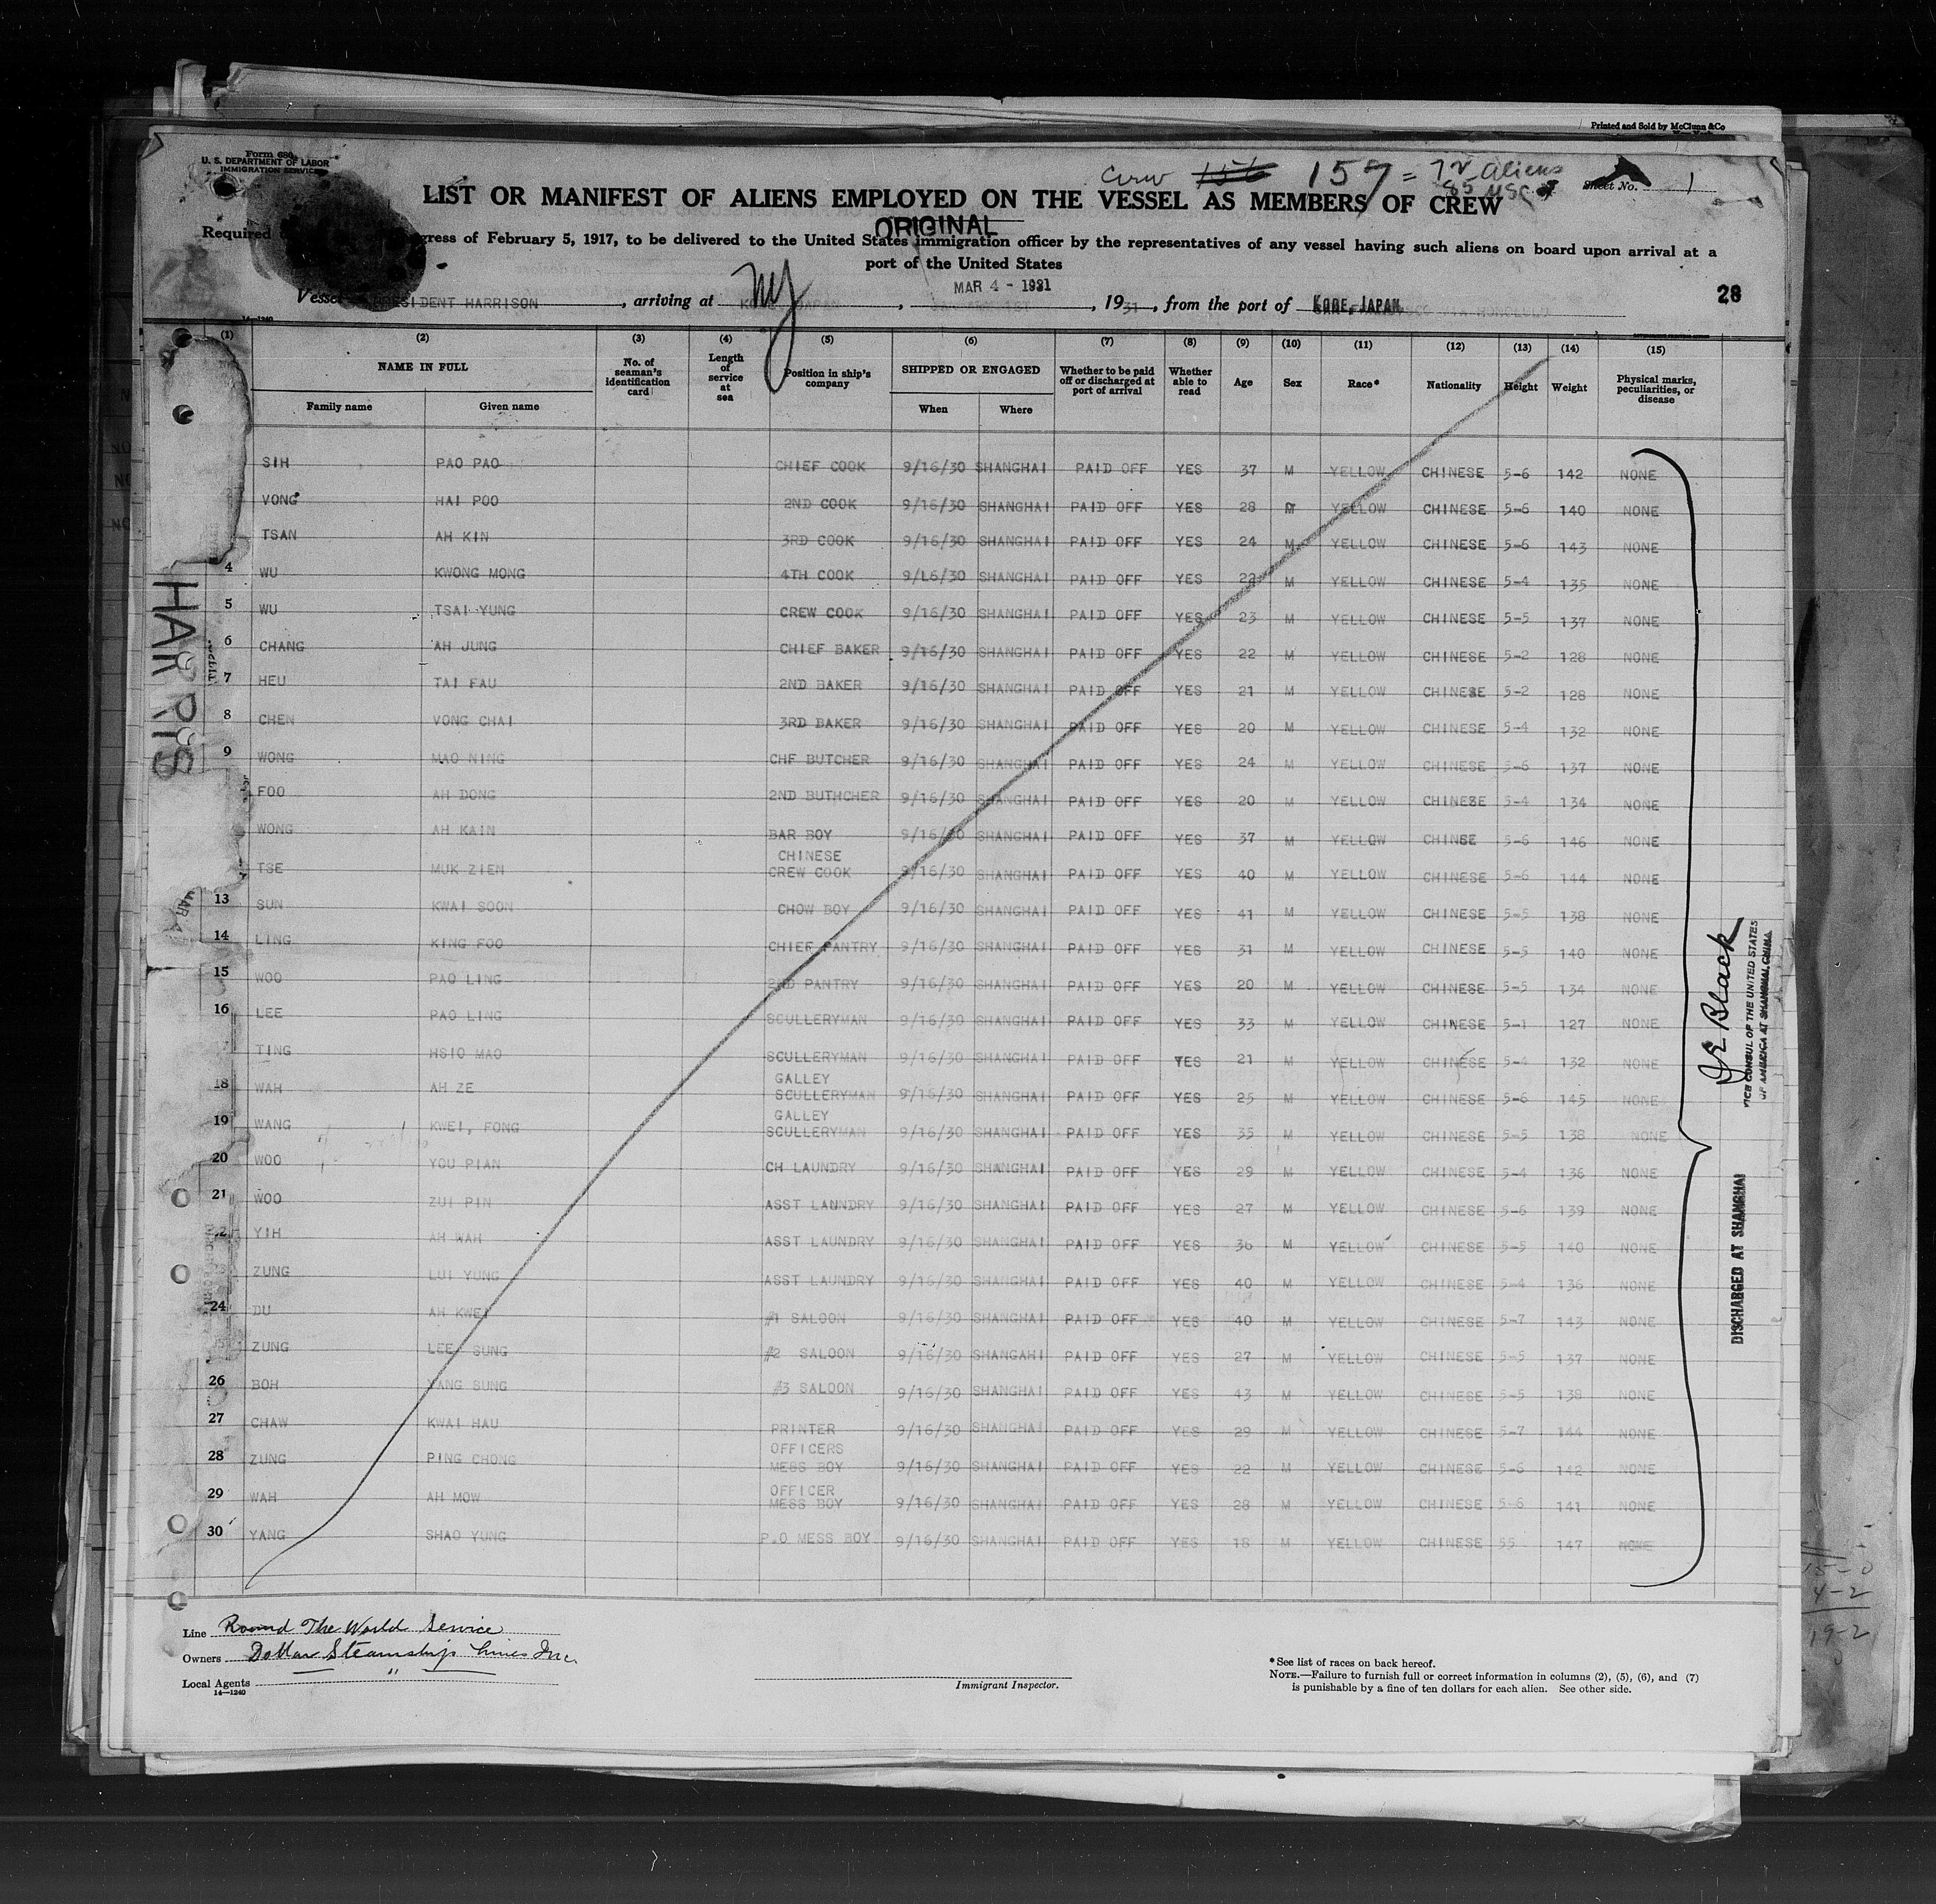 Printed and Sold by McClunn &Co
Form 680
U. S. DEPARTMENT OF LABOR
IMMIGRATION SERVICE
Crew 156 157 = 72 Aliens
85 USC
Sheet No. 1
LIST OR MANIFEST OF ALIENS EMPLOYED ON THE VESSEL AS MEMBERS OF CREW
ORIGINAL
Required gress of February 5, 1917, to be delivered to the United States immigration officer by the representatives of any vessel having such aliens on board upon arrival at a
port of the United States
Vessel PRESIDENT HARRISON, arriving at NY, MAR 4 - 1931, 1931, from the port of KOBE, JAPAN
28
14—1240
(1) (2) (3) (4) (5) (6) (7) (8) (9) (10) (11) (12) (13) (14) (15)
NAME IN FULL No. of seaman's identification card Length of service at sea Position in ship's company SHIPPED OR ENGAGED Whether to be paid off or discharged at port of arrival Whether able to read Age Sex Race* Nationality Height Weight Physical marks, peculiarities, or disease
Family name Given name When Where
SIH PAO PAO CHIEF COOK 9/16/30 SHANGHAI PAID OFF YES 37 M YELLOW CHINESE 5-6 142 NONE
VONG HAI POO 2ND COOK 9/16/30 SHANGHAI PAID OFF YES 28 M YELLOW CHINESE 5-6 140 NONE
TSAN AH KIN 3RD COOK 9/16/30 SHANGHAI PAID OFF YES 24 M YELLOW CHINESE 5-6 143 NONE
4 WU KWONG MONG 4TH COOK 9/L6/30 SHANGHAI PAID OFF YES 22 M YELLOW CHINESE 5-4 135 NONE
5 WU TSAI YUNG CREW COOK 9/16/30 SHANGHAI PAID OFF YES 23 M YELLOW CHINESE 5-5 137 NONE
6 CHANG AH JUNG CHIEF BAKER 9/16/30 SHANGHAI PAID OFF YES 22 M YELLOW CHINESE 5-2 128 NONE
7 HEU TAI FAU 2ND BAKER 9/16/30 SHANGHAI PAID OFF YES 21 M YELLOW CHINESE 5-2 128 NONE
8 CHEN VONG CHAI 3RD BAKER 9/16/30 SHANGHAI PAID OFF YES 20 M YELLOW CHINESE 5-4 132 NONE
9 WONG MAO NING CHF BUTCHER 9/16/30 SHANGHAI PAID OFF YES 24 M YELLOW CHINESE 5-6 137 NONE
FOO AH DONG 2ND BUTHCHER 9/16/30 SHANGHAI PAID OFF YES 20 M YELLOW CHINESE 5-4 134 NONE
WONG AH KAIN BAR BOY 9/16/30 SHANGHAI PAID OFF YES 37 M YELLOW CHINSE 5-6 146 NONE
TSE MUK ZIEN CHINESE CREW COOK 9/16/30 SHANGHAI PAID OFF YES 40 M YELLOW CHINESE 5-6 144 NONE
13 SUN KWAI SOON CHOW BOY 9/16/30 SHANGHAI PAID OFF YES 41 M YELLOW CHINESE 5-5 138 NONE
14 LING KING FOO CHIEF PANTRY 9/16/30 SHANGHAI PAID OFF YES 31 M YELLOW CHINESE 5-5 140 NONE
15 WOO PAO LING 2ND PANTRY 9/16/30 SHANGHAI PAID OFF YES 20 M YELLOW CHINESE 5-5 134 NONE
16 LEE PAO LING SCULLERYMAN 9/16/30 SHANGHAI PAID OFF YES 33 M YELLOW CHINESE 5-1 127 NONE
TING HSIO MAO SCULLERYMAN 9/16/30 SHANGHAI PAID OFF YES 21 M YELLOW CHINESE 5-4 132 NONE
18 WAH AH ZE GALLEY SCULLERYMAN 9/16/30 SHANGHAI PAID OFF YES 25 M YELLOW CHINESE 5-6 145 NONE
19 WANG KWEI, FONG GALLEY SCULLERYMAN 9/16/30 SHANGHAI PAID OFF YES 35 M YELLOW CHINESE 5-5 138 NONE
20 WOO YOU PIAN CH LAUNDRY 9/16/30 SHANGHAI PAID OFF YES 29 M YELLOW CHINESE 5-4 136 NONE
21 WOO ZUI PIN ASST LAUNDRY 9/16/30 SHANGHAI PAID OFF YES 27 M YELLOW CHINESE 5-6 139 NONE
2 YIH AH WAH ASST LAUNDRY 9/16/30 SHANGHAI PAID OFF YES 36 M YELLOW CHINESE 5-5 140 NONE
ZUNG LUI YUNG ASST LAUNDRY 9/16/30 SHANGHAI PAID OFF YES 40 M YELLOW CHINESE 5-4 136 NONE
24 DU AH KWEI #1 SALOON 9/16/30 SHANGHAI PAID OFF YES 40 M YELLOW CHINESE 5-7 143 NONE
ZUNG LEE SUNG #2 SALOON 9/16/30 SHANGAHI PAID OFF YES 27 M YELLOW CHINESE 5-5 137 NONE
26 BOH YANG SUNG #3 SALOON 9/16/30 SHANGHAI PAID OFF YES 43 M YELLOW CHINESE 5-5 138 NONE
27 CHAW KWAI HAU PRINTER 9/16/30 SHANGHAI PAID OFF YES 29 M YELLOW CHINESE 5-7 144 NONE
28 ZUNG PING CHONG OFFICERS MESS BOY 9/16/30 SHANGHAI PAID OFF YES 22 M YELLOW CHINESE 5-6 142 NONE
29 WAH AH MOW OFFICER MESS BOY 9/16/30 SHANGHAI PAID OFF YES 28 M YELLOW CHINESE 5-6 141 NONE
30 YANG SHAO YUNG P.O MESS BOY 9/16/30 SHANGHAI PAID OFF YES 18 M YELLOW CHINESE 55 147 NONE
HARRIS
MAR 4
J E Black
VICE CONSUL OF THE UNITED STATES
OF AMERICA AT SHANGHAI, CHINA
DISCHARGED AT SHANGHAI
15-0
4-2
19-2
Line Round The World Service
Owners Dollar Steamship Lines Inc.
Local Agents "
14—1240
Immigrant Inspector.
* See list of races on back hereof.
NOTE.—Failure to furnish full or correct information in columns (2), (5), (6), and (7)
is punishable by a fine of ten dollars for each alien. See other side.